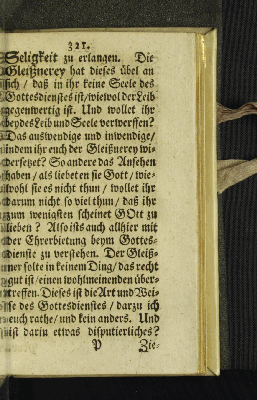 321.
Seligkeit zu erlangen. Die
Gleißnerey hat dieses übel an
sich / daß in ihr keine Seele des
Gottesdienstes ist / wiewol der Leib
gegenwertig ist. Und wollet ihr
beydes Leib und Seele verwerffen?
Das auswendige und inwendige /
indem ihr euch der Gleißnerey wi-
dersetzet? So andere das Ansehen
haben / als liebeten sie Gott / wie-
wohl sie es nicht thun / wollet ihr
darum nicht so viel thun / daß ihr
zum wenigsten scheinet GOtt zu
lieben? Also ists auch allhier mit
der Ehrerbietung beym Gottes-
dienste zu verstehen. Der Gleiß-
ner solte in keinem Ding / das recht
gut ist / einen wohlmeinenden über-
treffen. Dieses ist die Art und Wei-
se des Gottesdienstes / darzu ich
euch rathe / und kein anders. Und
ist darin etwas disputierliches?
P Zie-